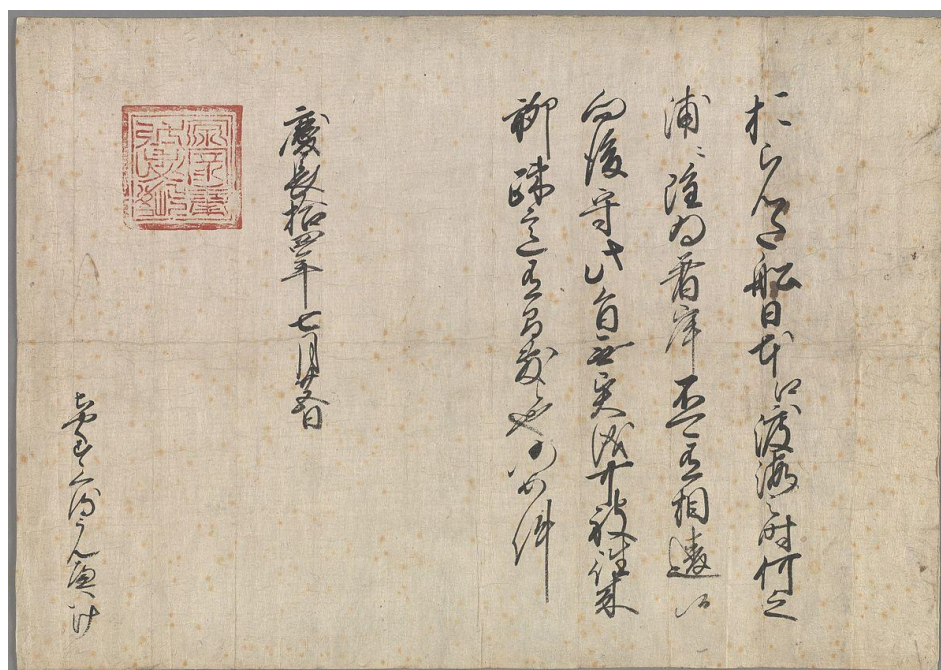 おらんだ船日本江渡海之時何之
浦ニ雖為着岸不可有相違候
向後守此旨無異儀可被往来
聊疎意有間敷候也仍如件
慶長拾四年七月廿五日
ちやくすくるうんへいけ